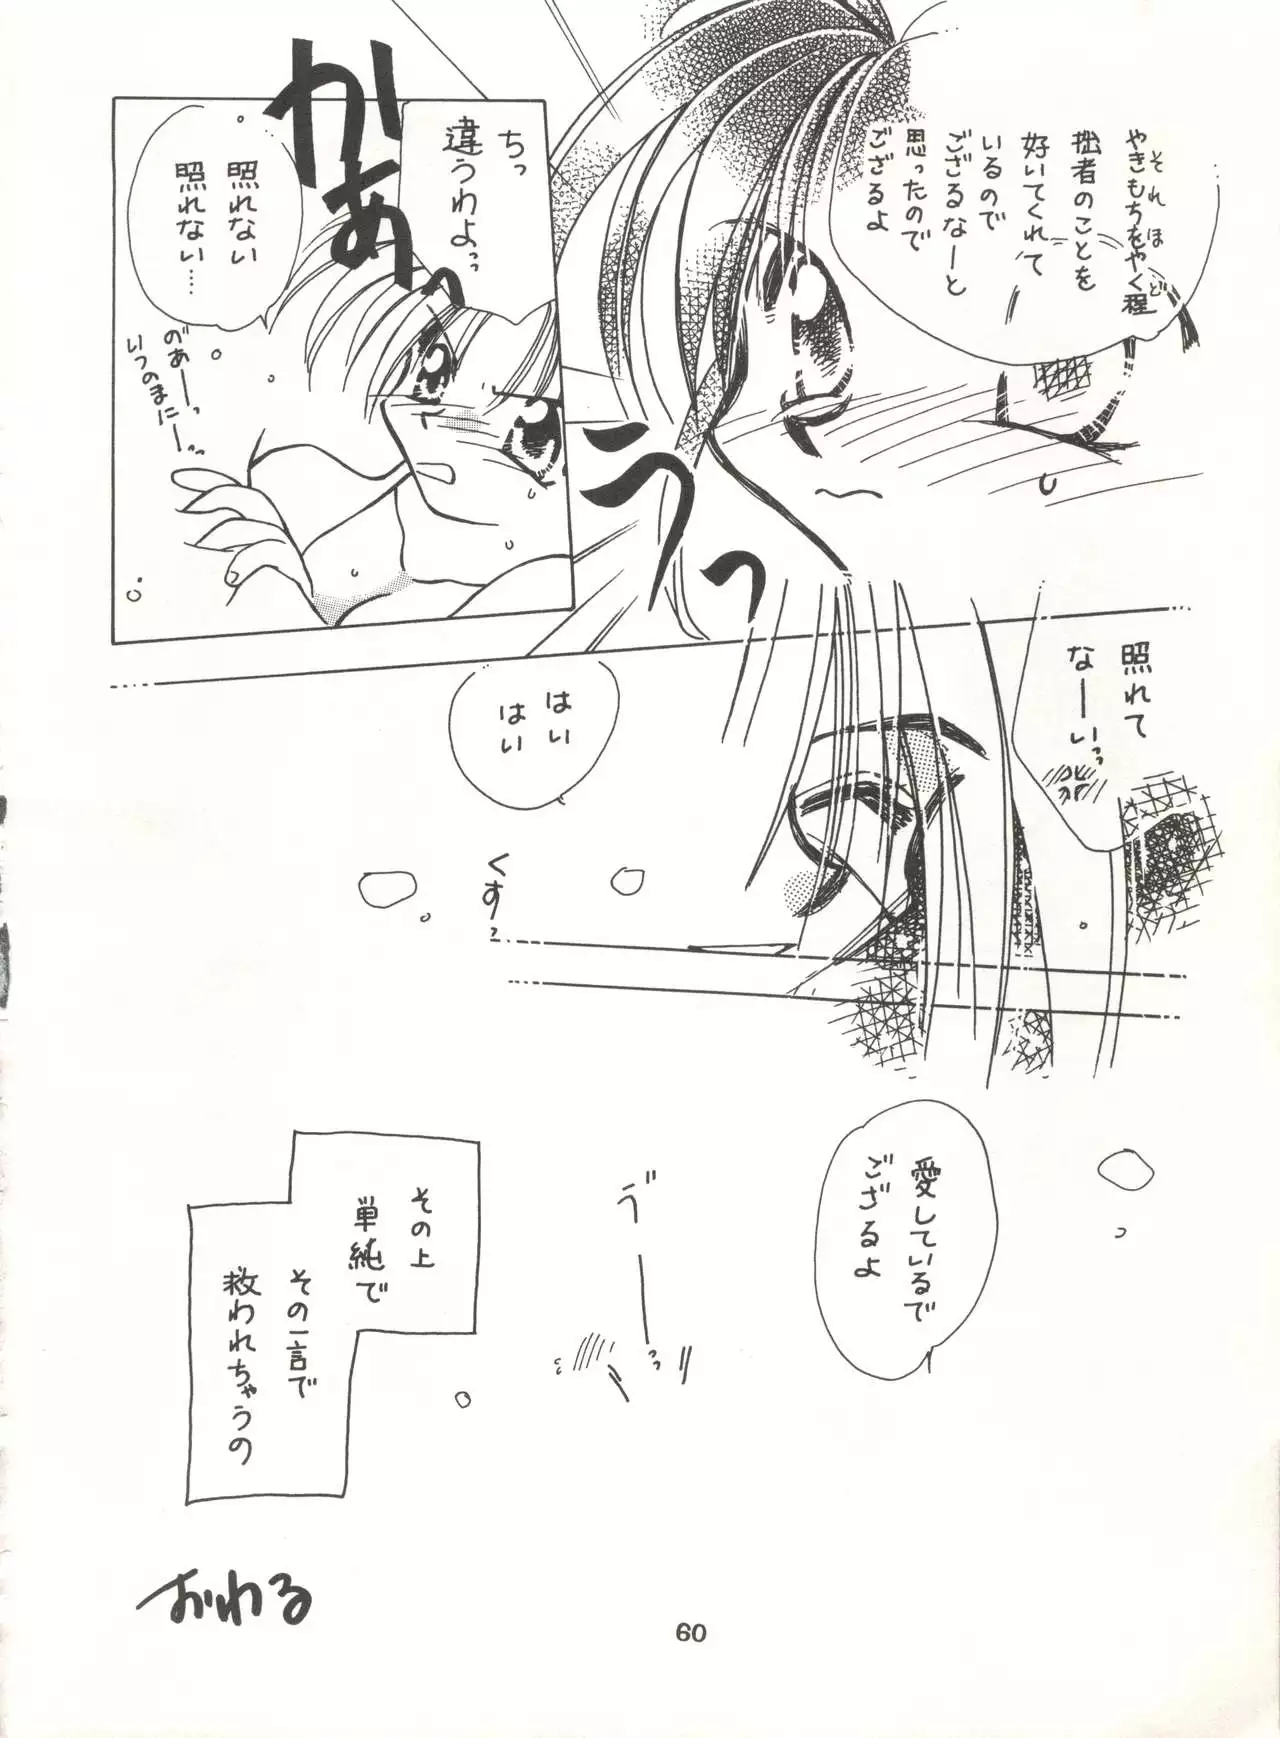 やきもちをやく程
それほど
拙者のことを
好いてくれて
いるので
ござるなーと
思ったので
ござるよ
うっ
かあ
ちっ
違うわよっっ
照れない
照れない…
のあーーっ
いつのまにーっ
照れて
なーいっっ
はい
はい
くすっ
愛しているで
ござるよ
ゔーっ
その上
単純で
その一言で
救われちゃうの
おわる
60